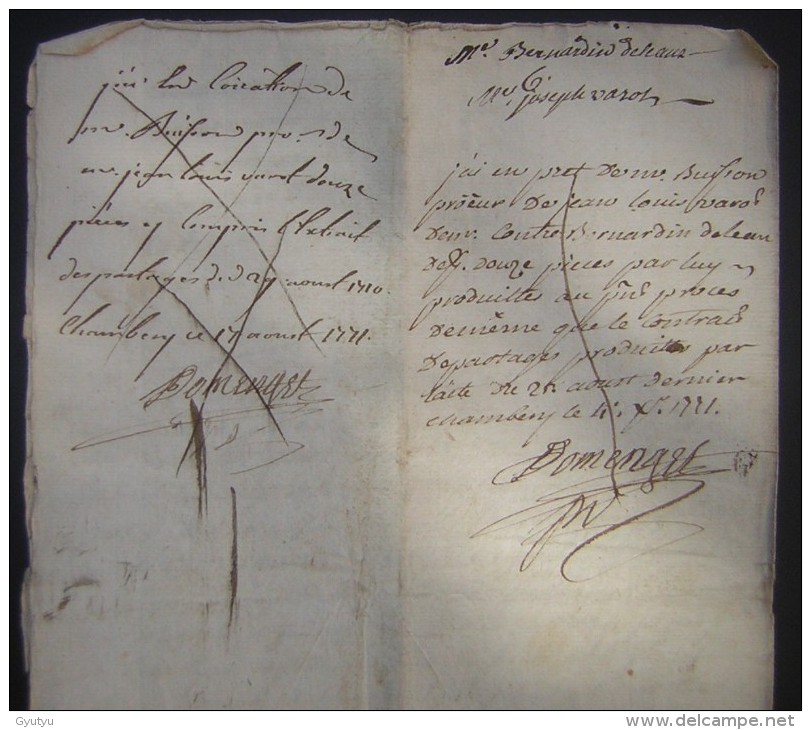 j'ai en Comation de
mr. Buisson pror. de
mr. jean louis varot douze
pièces y Compris l'Extrait
des partages de d 27 aoust 1710.
Chambery ce 17 aoust 1771.
Domenget
Mr. Bernardin deleaux
Mr. joseph varot
j'ai en pret de mr. Buisson
proĉeur de jean Louis varot
demr. Contre Bernardin deleau
deff. douze pieces par luy
produittes au pnt. proces
de même que le Contract
de partages produittes par
l'acte du 21 aoust dernier
Chambery le 4e. Xbr. 1771.
Domenget
pr
Gyutyu
www.delcampe.net